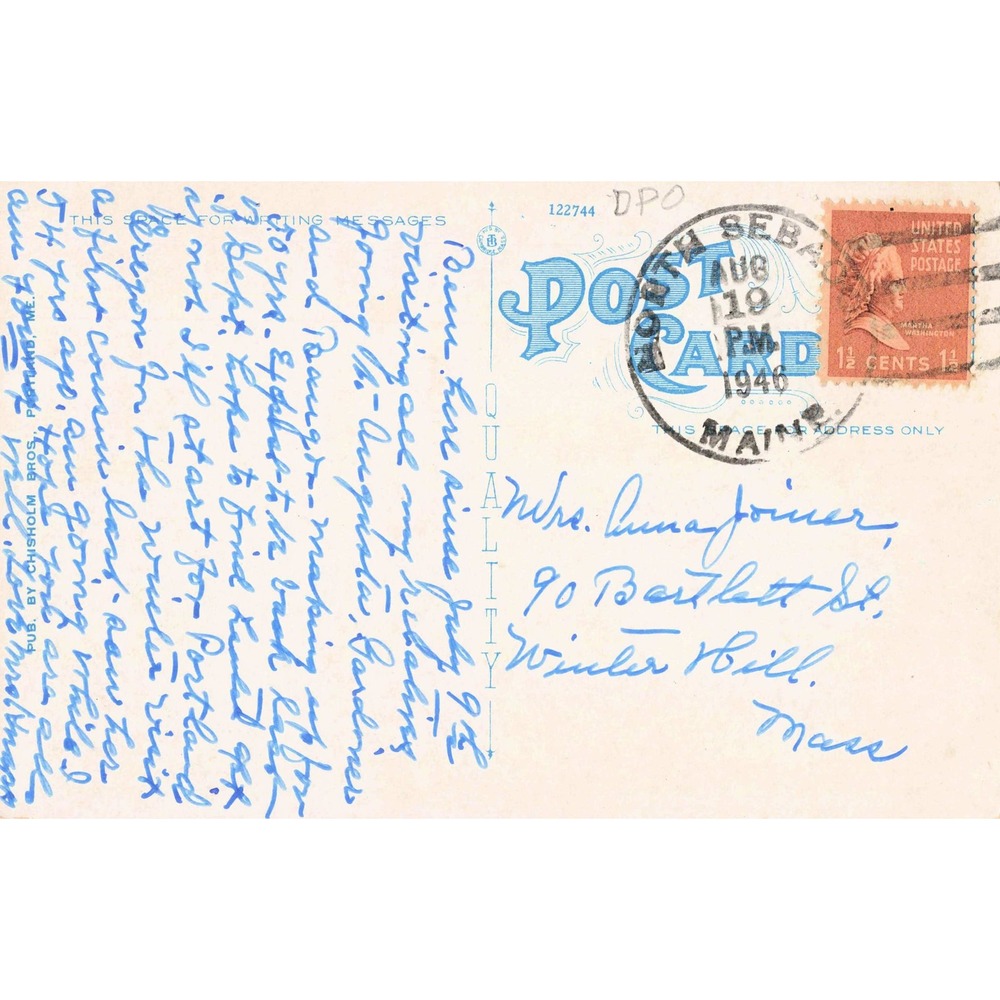 THIS SPACE FOR WRITING MESSAGES
122744
DPO
POST CARD
NORTH SEBAGO
AUG
19
PM
1946
MAINE
UNITED
STATES
POSTAGE
MARTHA
WASHINGTON
1½ CENTS 1½
THIS SPACE FOR ADDRESS ONLY
QUALITY
PUB. BY CHISHOLM BROS., PORTLAND, ME.
Been here since July 9th
visiting all my relatives
Going to Augusta, Gardiner
and Bangor making it for
10 yrs. Expect to be back
in Sept. hope to find
is not start for Portland
Oregon for the winter visit
a first cousin last saw her
54 yrs ago, am going while I
am
Mrs. Anna Joiner,
90 Bartlett St,
Winter Hill.
Mass